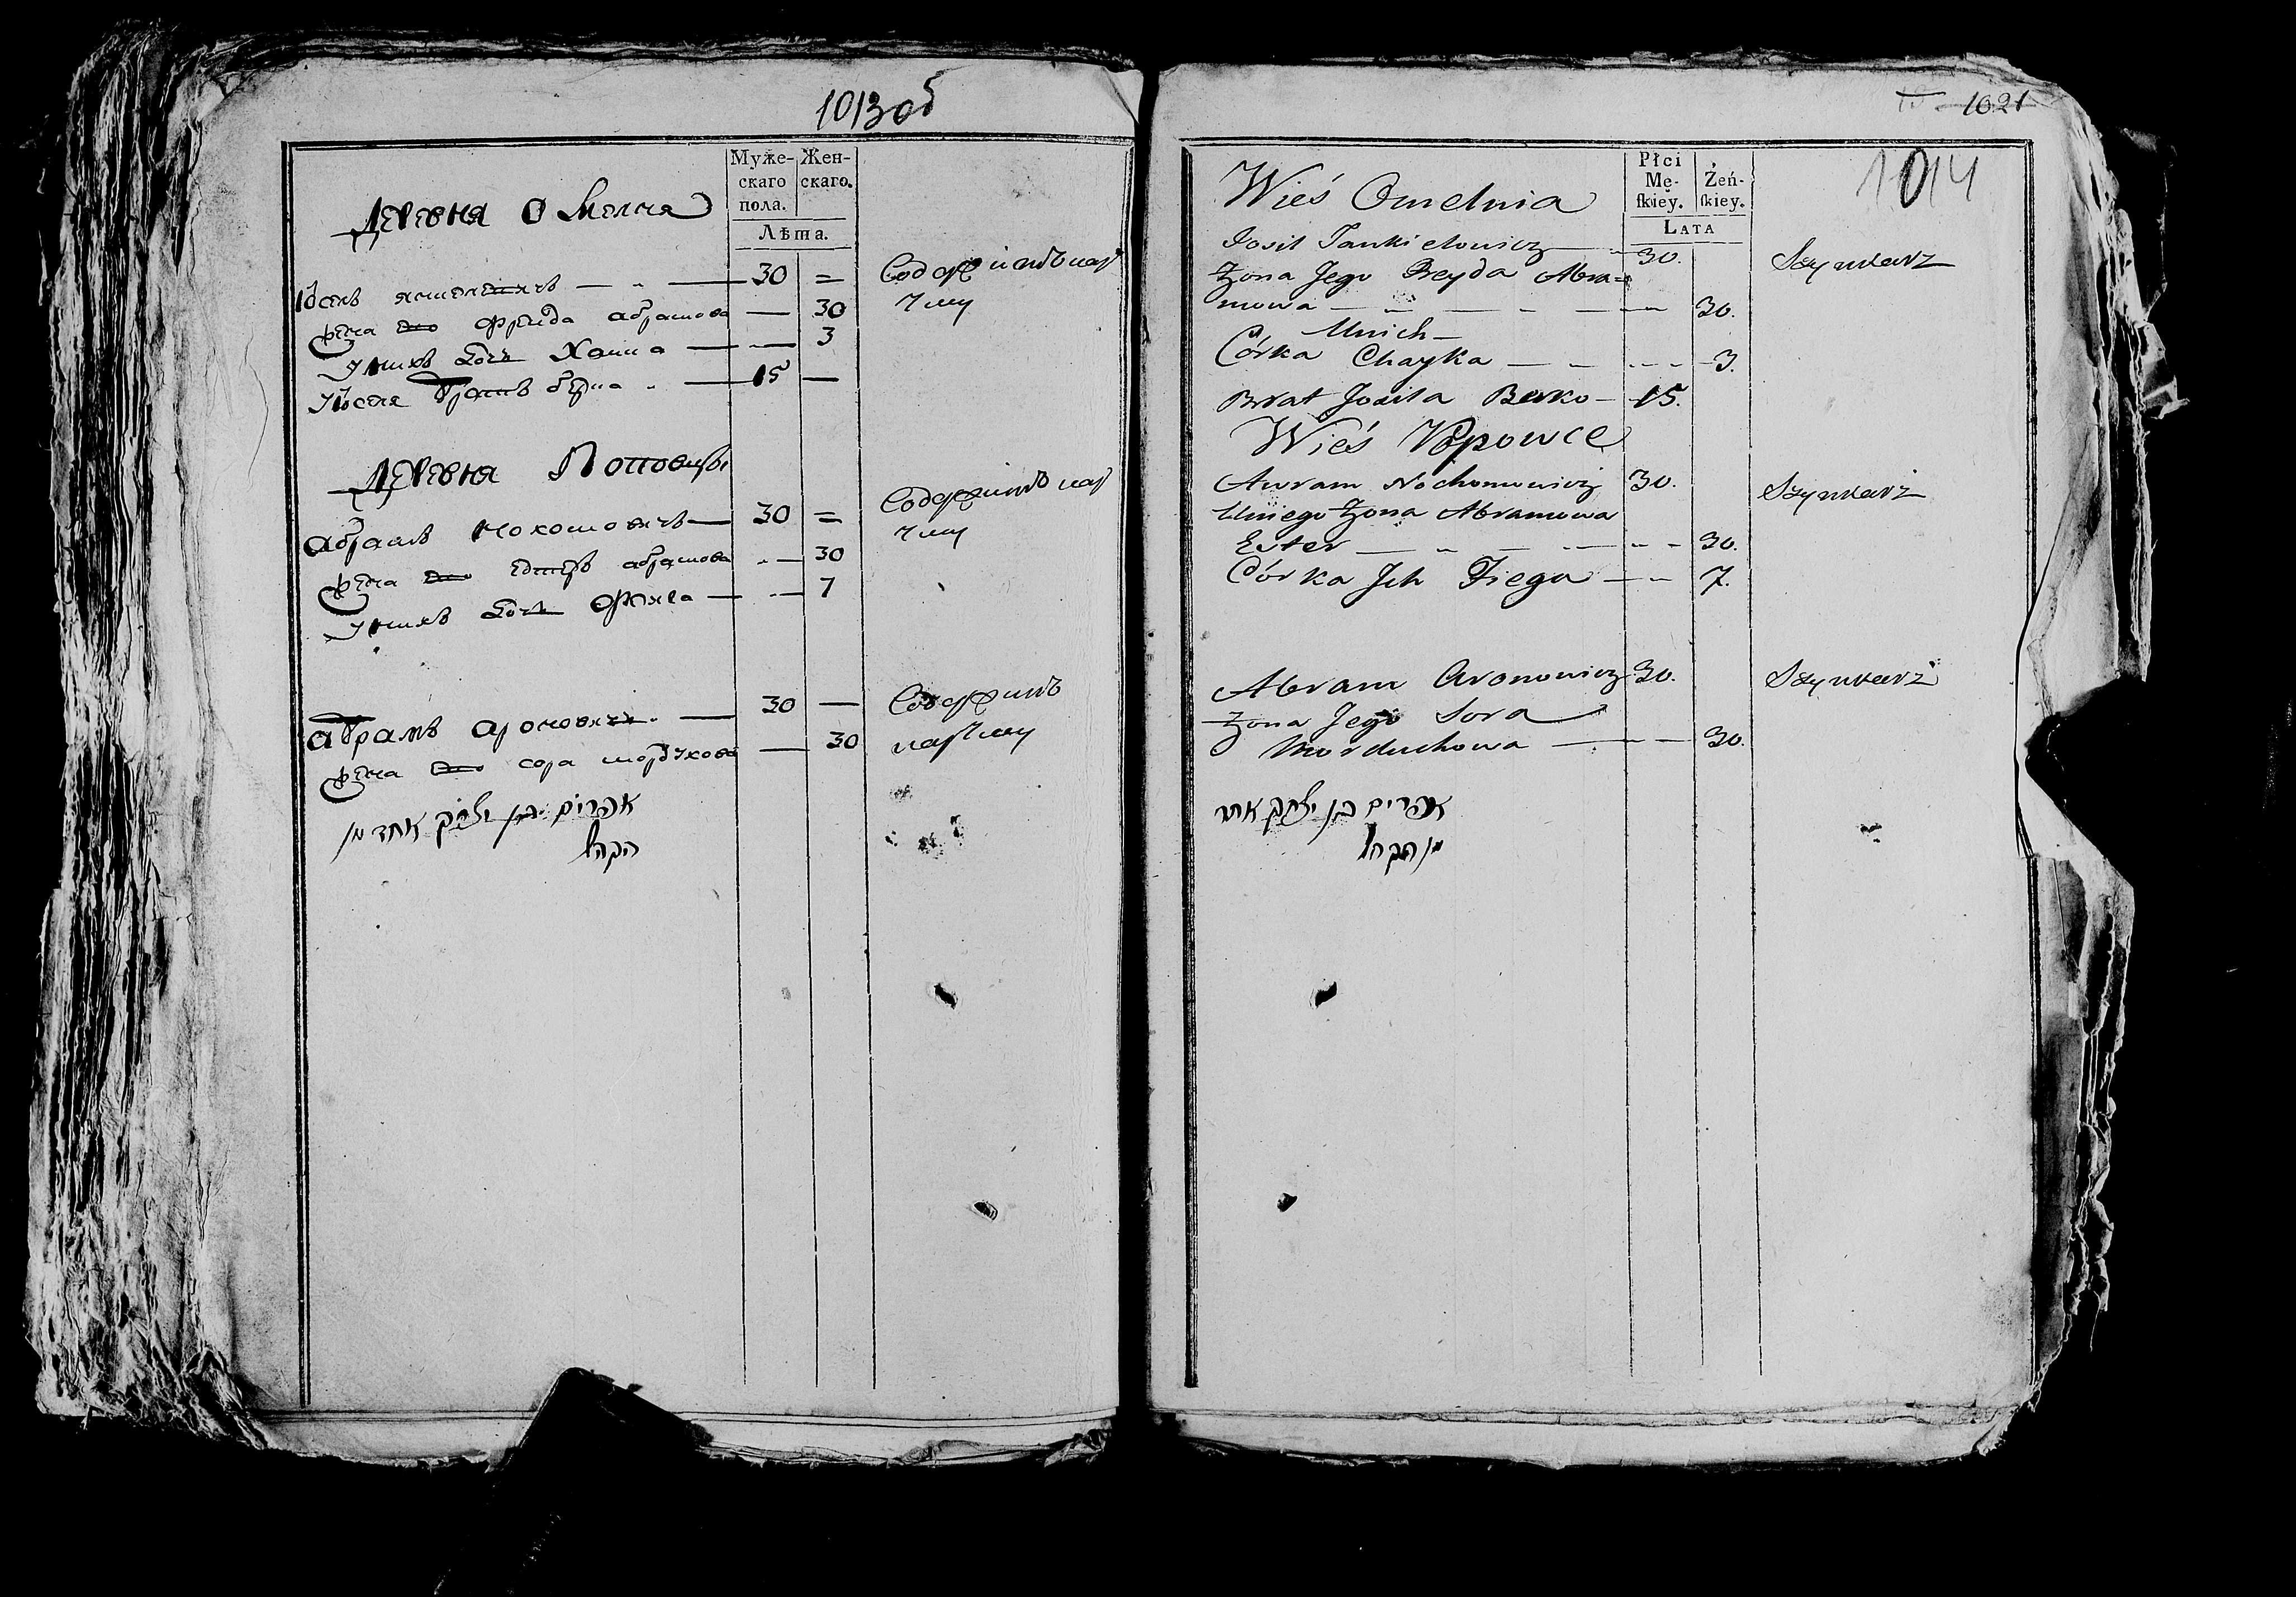 1013об
Муже-
скаго
пола.
Жен-
скаго.
Лѣта.
Деревня Омелня
Іосель — 30 = Содержитъ кар
чму
жена его Фрейда абрамова — 30
У нихъ дочь Хаика — 3
Іоселя братъ берка — 15 —
Деревня Поповцы
абрамъ Нохомовичъ — 30 = Содержитъ кар
чму
жена его Естеръ абрамова — 30
У нихъ дочь Фейга — 7
абрамъ ароновичъ. — 30 — Содержитъ
жена его сора мордухова — 30 карчму
אפרים בן יצחק אחד מן
הקהל
1021
1014
Płci
Mę-
ſkiey.
Żeń-
ſkiey.
Lata
Wieś Omelnia
Josil Jankielowicz — 30. Szynkarz
Żona Jego Freyda Abra=
mowa — 30.
U nich —
Córka Chayka — 3.
Brat Josila Berko — 15.
Wieś Popowce
Awram Nochomowicz 30. Szynkarz
U niego Żona Abramowa
Ester — 30.
Córka Ich Fiega — 7.
Abram Aronowicz 30. Szynkarz
Żona Jego Sora
Morduchowa — 30.
אפרים בן יצחק אחד
מן הקהל